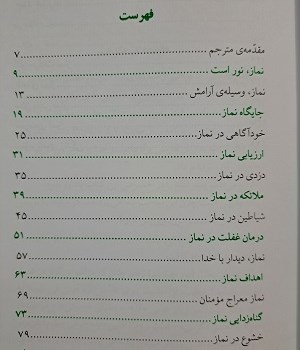 فهرست
مقدّمه‌ی مترجم ........ ۷
نماز، نور است ........ ۹
نماز، وسیله‌ی آرامش ........ ۱۳
جایگاه نماز ........ ۱۹
خودآگاهی در نماز ........ ۲۵
ارزیابی نماز ........ ۳۱
دزدی در نماز ........ ۳۵
ملائکه در نماز ........ ۳۹
شیاطین در نماز ........ ۴۵
درمان غفلت در نماز ........ ۵۱
نماز، دیدار با خدا ........ ۵۷
اهداف نماز ........ ۶۳
نماز معراج مؤمنان ........ ۶۹
گناه‌زدایی نماز ........ ۷۳
خشوع در نماز ........ ۷۹